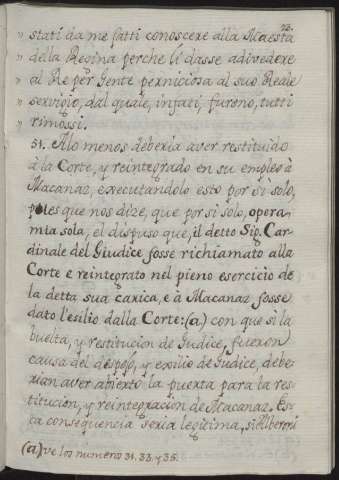 72.
" stati da me fatti conoscere allà Maestà
" della Regina perche li dasse adivedere
" al Re per gente perniciosa al suo Reale
" servigio, dal quale, infati, furono, tutti
" rimossi.
51. Alo menos deberia aver restituido
à la Corte, y reintegrado en su empleo à
Macanaz, executandolo esto por sì solo,
pues que nos dize, que por sì solo, opera
mia sola, el dispuso que, il detto Sig. Car-
dinale del Giudice fosse richiamato alla
Corte e reintegrato nel pieno esercicio de
la detta sua carica, e à Macanaz fosse
dato l'esilio dalla Corte: (a) con que si la
buelta, y restitucion de Giudice, fueron
causa del despojo, y exilio de Giudice, debe-
rian aver abierto la puerta para la res-
titucion, y reintegracion de Macanaz. Es-
ta consequencia seria legitima, si Alberoni
(a) ve los numero 31. 33. y 35.